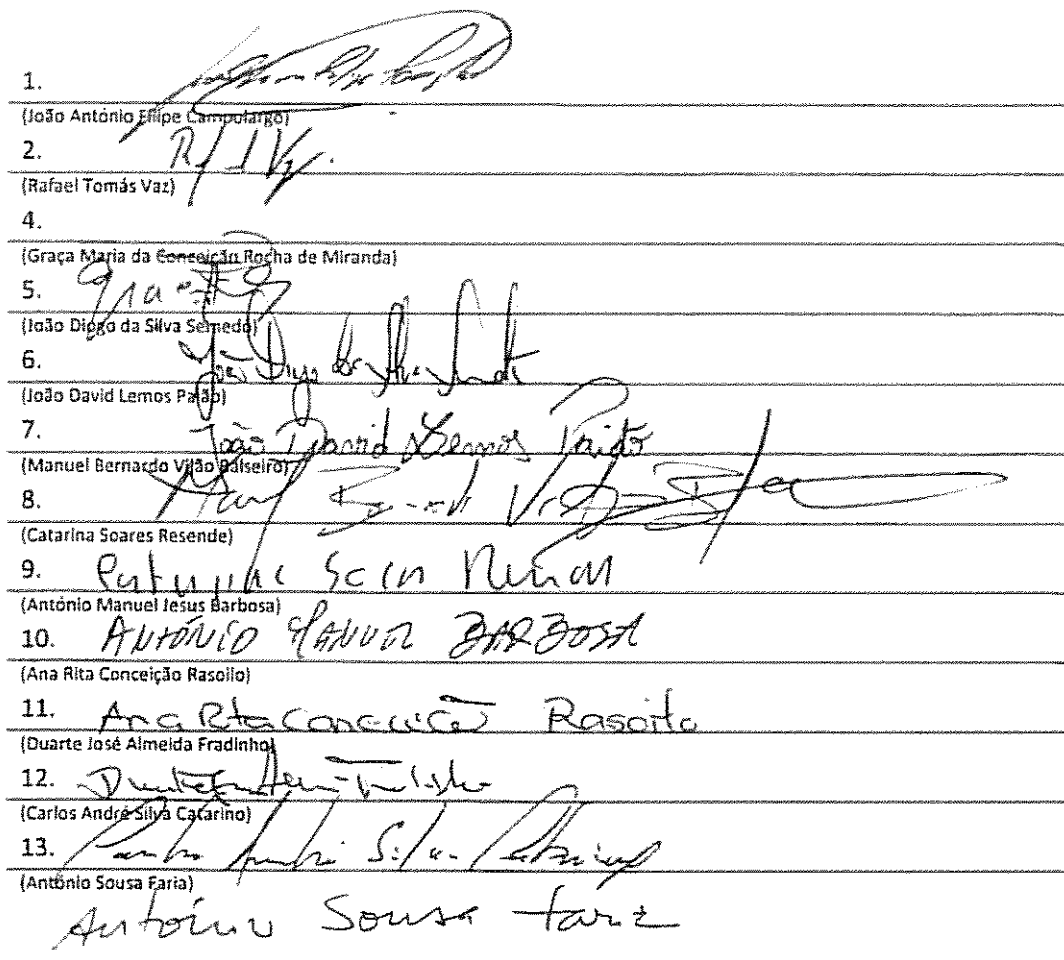 1.
(João António Filipe Campolargo)
2. Raf l Vaz.
(Rafael Tomás Vaz)
4.
(Graça Maria da Conceição Rocha de Miranda)
5. Graça
(João Diogo da Silva Semedo)
6. João Diogo da Silva Semedo
(João David Lemos Paião)
7. João David Lemos Paião
(Manuel Bernardo Vilão Balseiro)
8.
(Catarina Soares Resende)
9.
(António Manuel Jesus Barbosa)
10. ANTÓNIO MANUEL BARBOSA
(Ana Rita Conceição Rasoilo)
11. Ana Rita Conceição Rasoilo
(Duarte José Almeida Fradinho)
12.
(Carlos André Silva Catarino)
13. Carlos André Silva Catarino
(António Sousa Faria)
António Sousa Faria